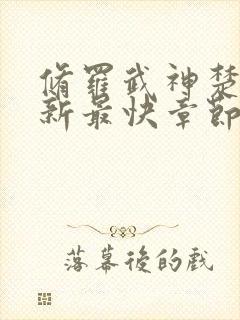 脩羅武神楚
新最快章節
落幕後的戲